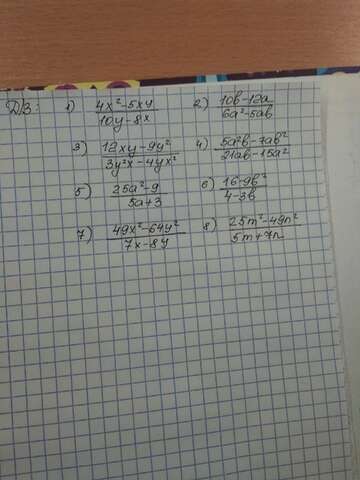 ДЗ: 1) (4x²-5xy)/(10y-8x) 2) (10b-12a)/(6a²-5ab)
3) (12xy-9y²)/(3y²x-4yx²) 4) (5a²b-7ab²)/(21ab-15a²)
5) (25a²-9)/(5a+3) 6) (16-9b²)/(4-3b)
7) (49x²-64y²)/(7x-8y) 8) (25m²-49n²)/(5m+7n)